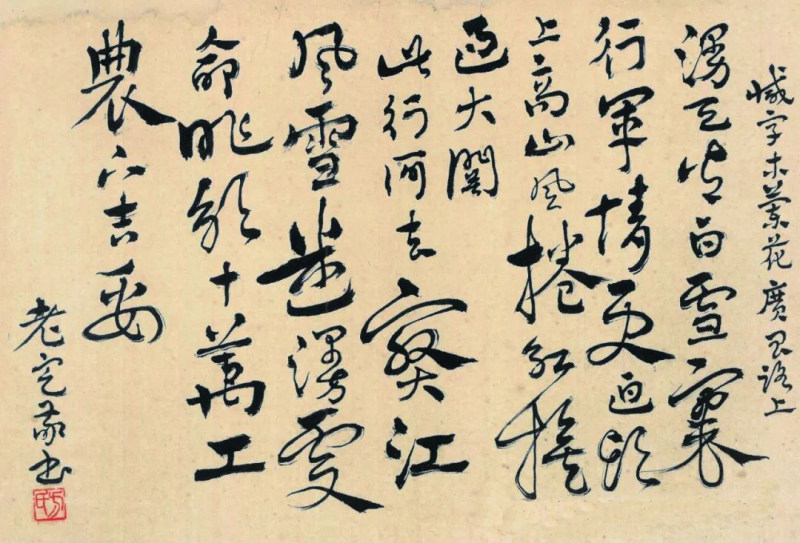 減字木蘭花 廣昌路上
漫天皆白雪裏
行軍情更迫頭
上高山風捲紅旗
過大關
此行何去贛江
風雪迷漫處
命昨頒十萬工
農下吉安
老定敬书